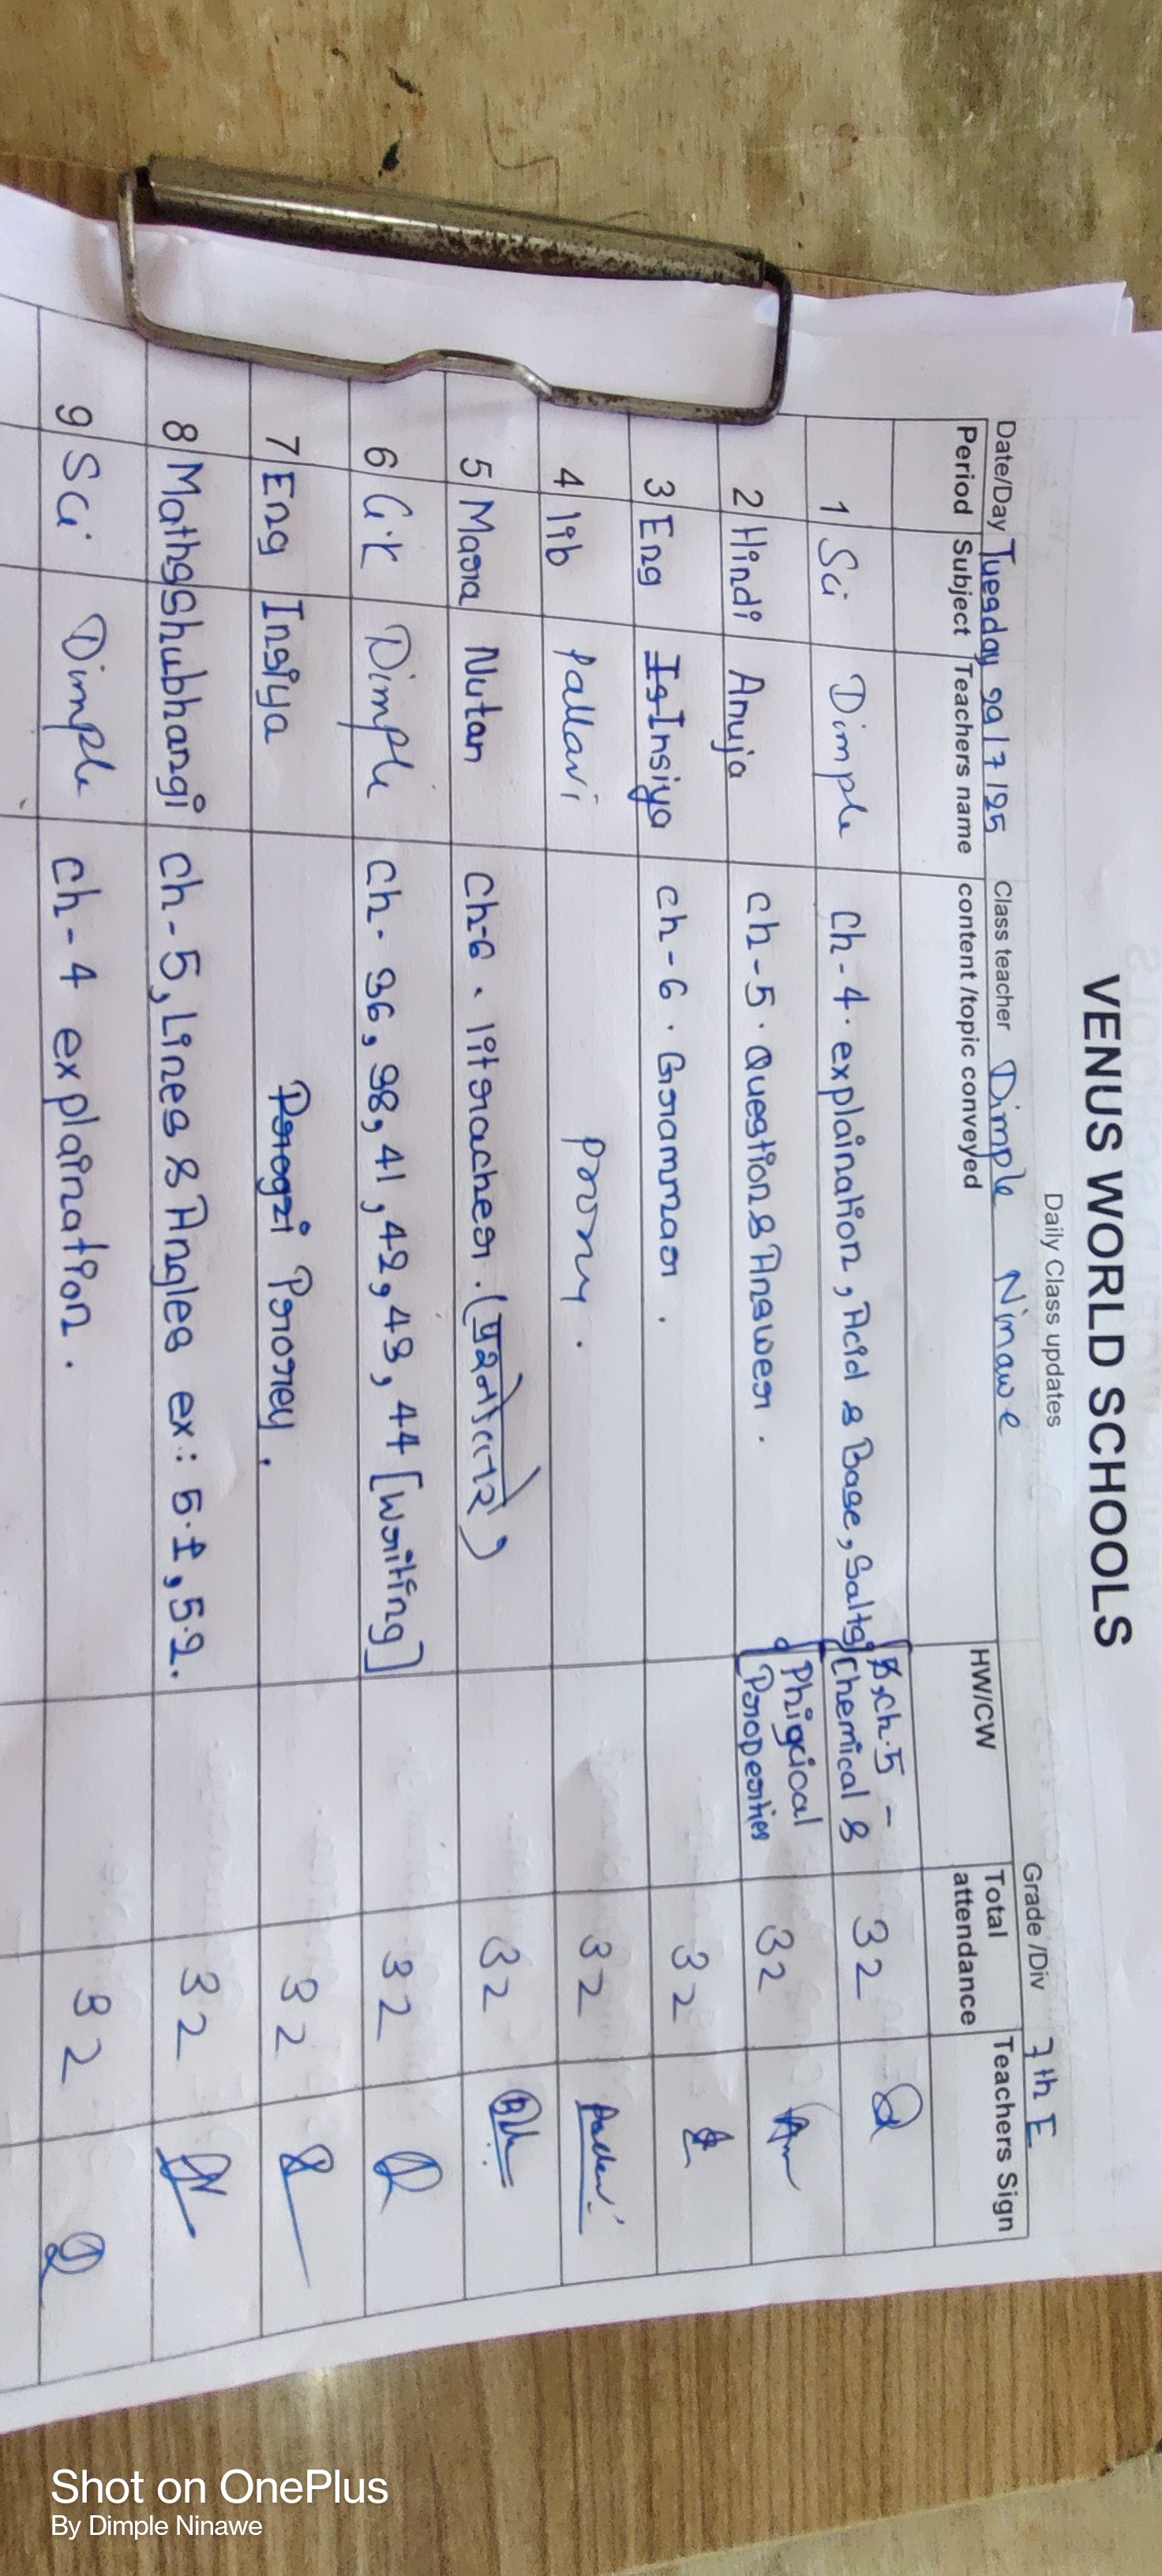 VENUS WORLD SCHOOLS
Daily Class updates
Grade /Div 7th E
Date/Day Tuesday 29/7/25 Class teacher Dimple Ninawe
Period Subject Teachers name content /topic conveyed HW/CW Total attendance Teachers Sign
1 Sci Dimple ch-4. explaination, Acid & Base, Salts, ch.5 - Chemical & Phigical Properties 32
2 Hindi Anuja ch-5. Question & Answer. 32
3 Eng Insiya ch-6. Grammar. 32
4 lib pallavi 32 Pallavi
5 Mara Nutan Ch-6. (प्रश्नोत्तरे) 32
6 G.K Dimple Ch. 36, 38, 41, 42, 43, 44 [Writing] 32
7 Eng Insiya 32
8 Maths Shubhangi ch-5, Lines & Angles ex: 5.1, 5.2. 32
9 Sci Dimple ch-4 explaination. 32
Shot on OnePlus
By Dimple Ninawe